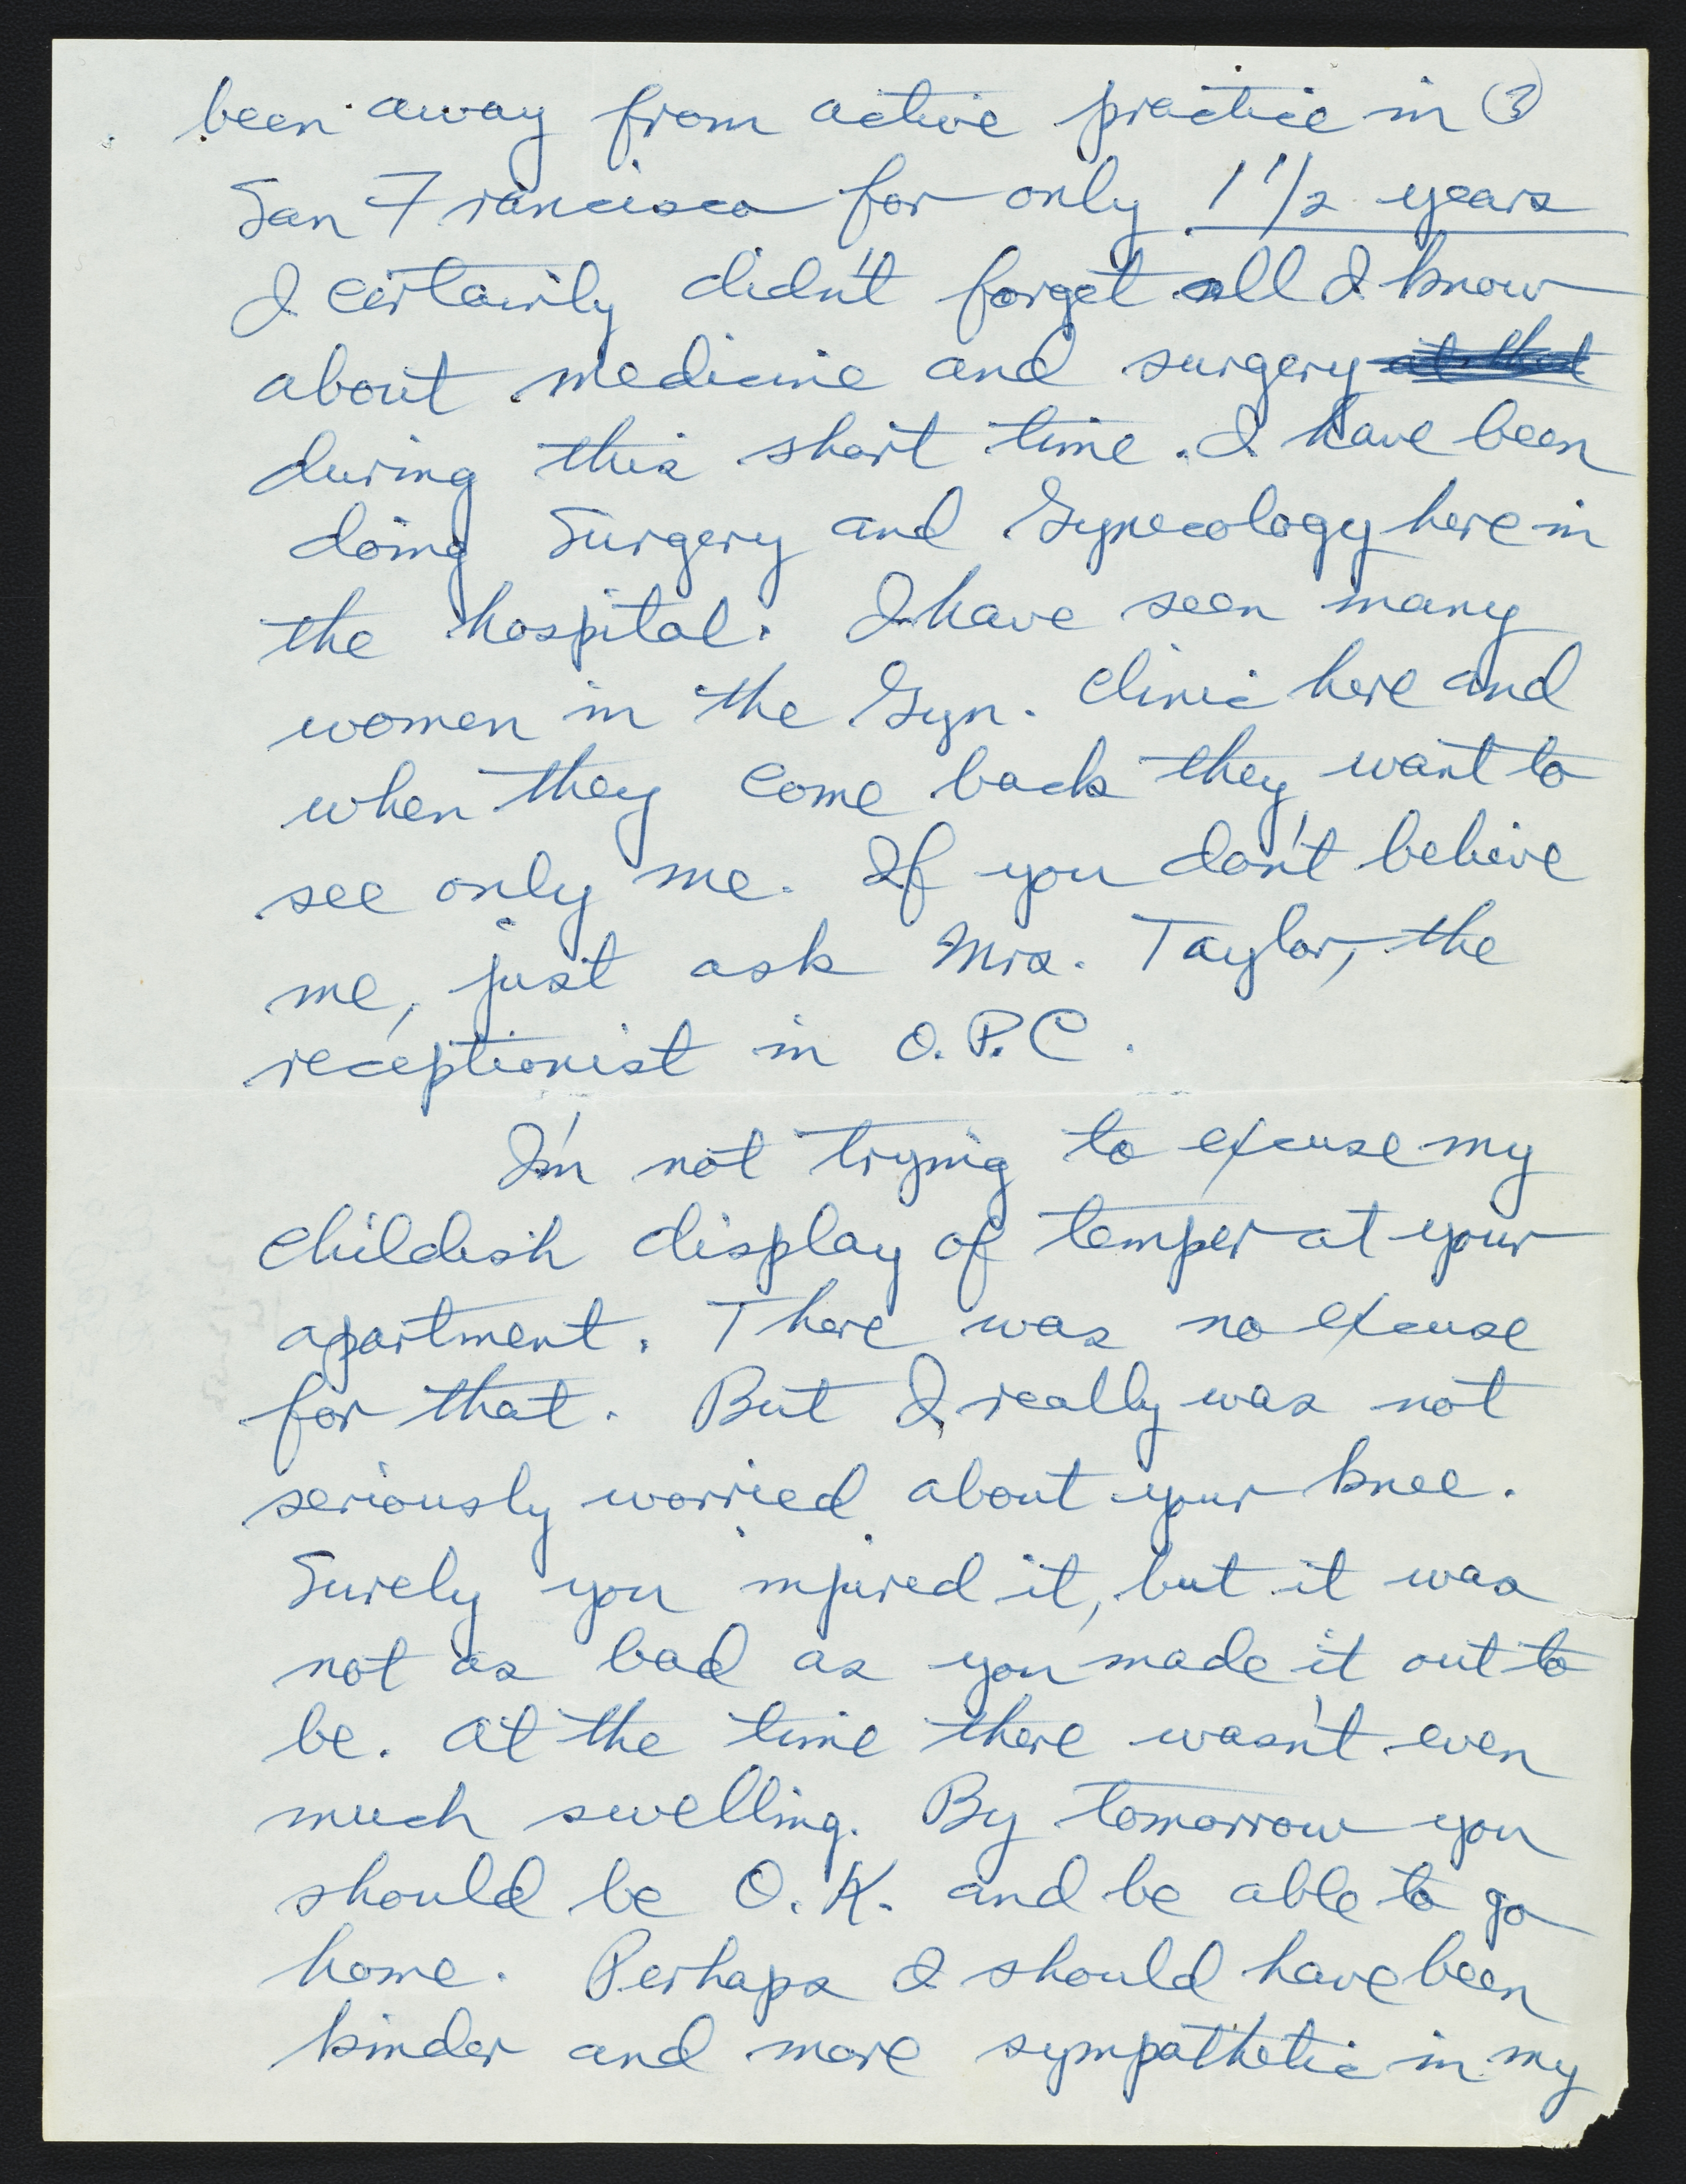 been away from active practice in (3)
San Francisco for only 1 1/2 years
I certainly didn't forget all I know
about medicine and surgery at that
during this short time. I have been
doing Surgery and Gynecology here in
the hospital. I have seen many
women in the Gyn. clinic here and
when they come back they want to
see only me. If you don't believe
me, just ask Mrs. Taylor, the
receptionist in O.P.C.
I'm not trying to excuse my
childish display of temper at your
apartment. There was no excuse
for that. But I really was not
seriously worried about your knee.
Surely you injured it, but it was
not as bad as you made it out to
be. At the time there wasn't even
much swelling. By tomorrow you
should be O.K. and be able to go
home. Perhaps I should have been
kinder and more sympathetic in my